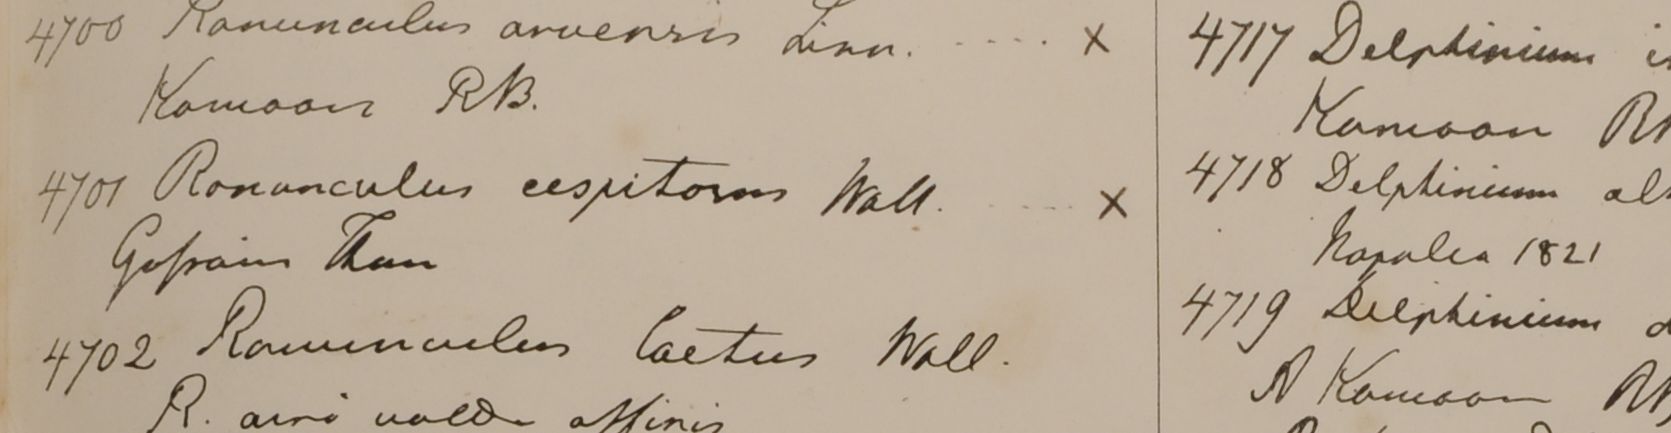 4700 Ranunculus arvensis Linn. ..... x
Kamaon RB.
4701 Ranunculus cespitosus Wall. ..... x
Gossain Than
4702 Ranunculus laetus Wall.
R. acri valde affinis
4717 Delphinium
Kamaon
4718 Delphinium
Napalia 1821
4719 Delphinium
Kamaon